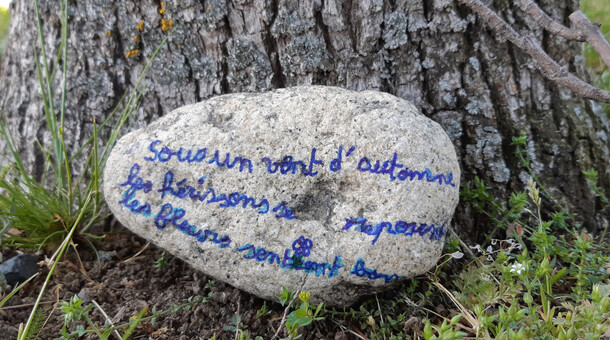 Sous un vent d'automne
les hérissons se reposent
les fleurs sentent bon